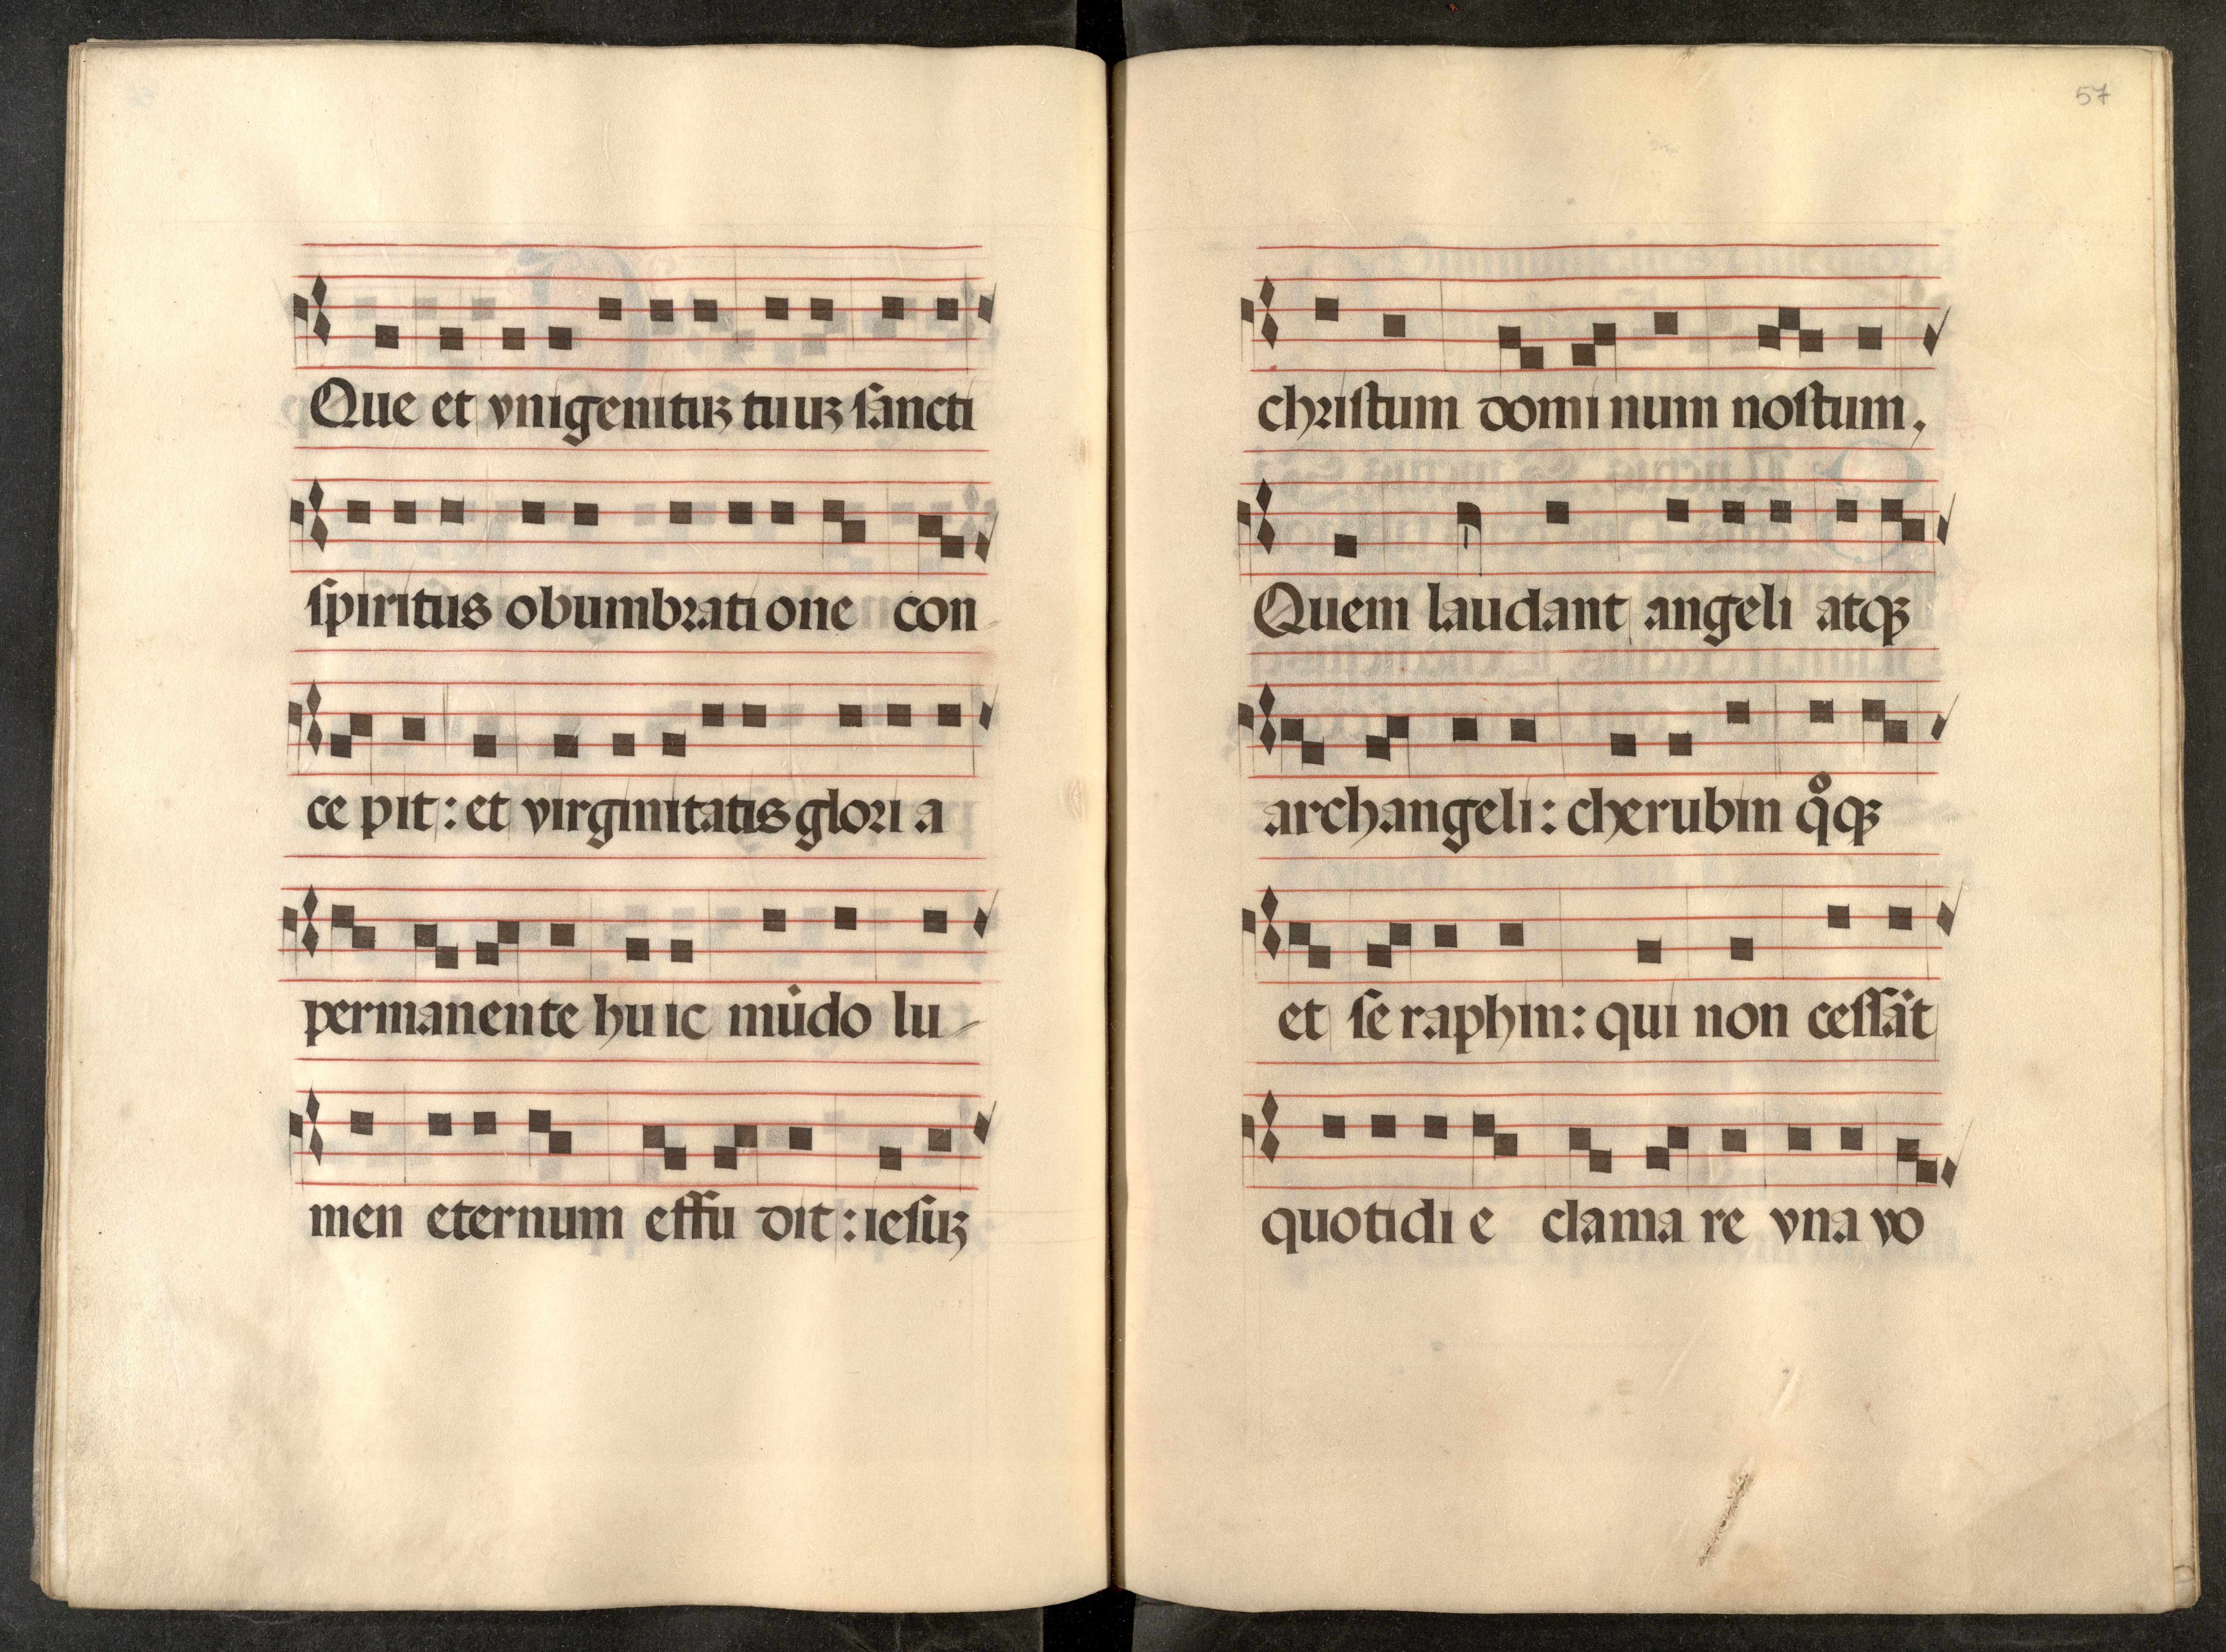 Que et vnigenituꝫ tuuꝫ ſancti
ſpiritus obumbrati one con
ce pit : et virginitatis glori a
permanente hu ic mūdo lu
men eternum effu dit : ieſuꝫ
57
chriſtum domi num noſtum,
Quem laudant angeli atqꝫ
archangeli : cherubin qͦqꝫ
et ſe raphin : qui non ceſſāt
quotidi e clama re vna vo